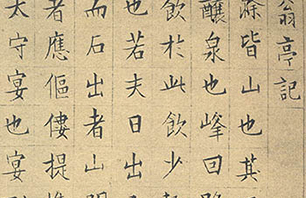 翁亭記
滁皆山也其
釀泉也峰回路
飲於此飲少輒
也若夫日出
而石出者山
者應傴僂提攜
太守宴也宴